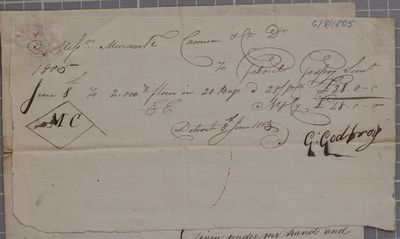 6/8/1805
Messrs Murdoch Cameron & Co Dr
1805 To Gabriel Godfroy Senr
June 8th To 2.000 lb flour in 20 Bags @ 28/ £28.0-0
MC EE NYCy £28.0-0
Detroit 8th June 1805
G: Godfroy
Given under my hand and